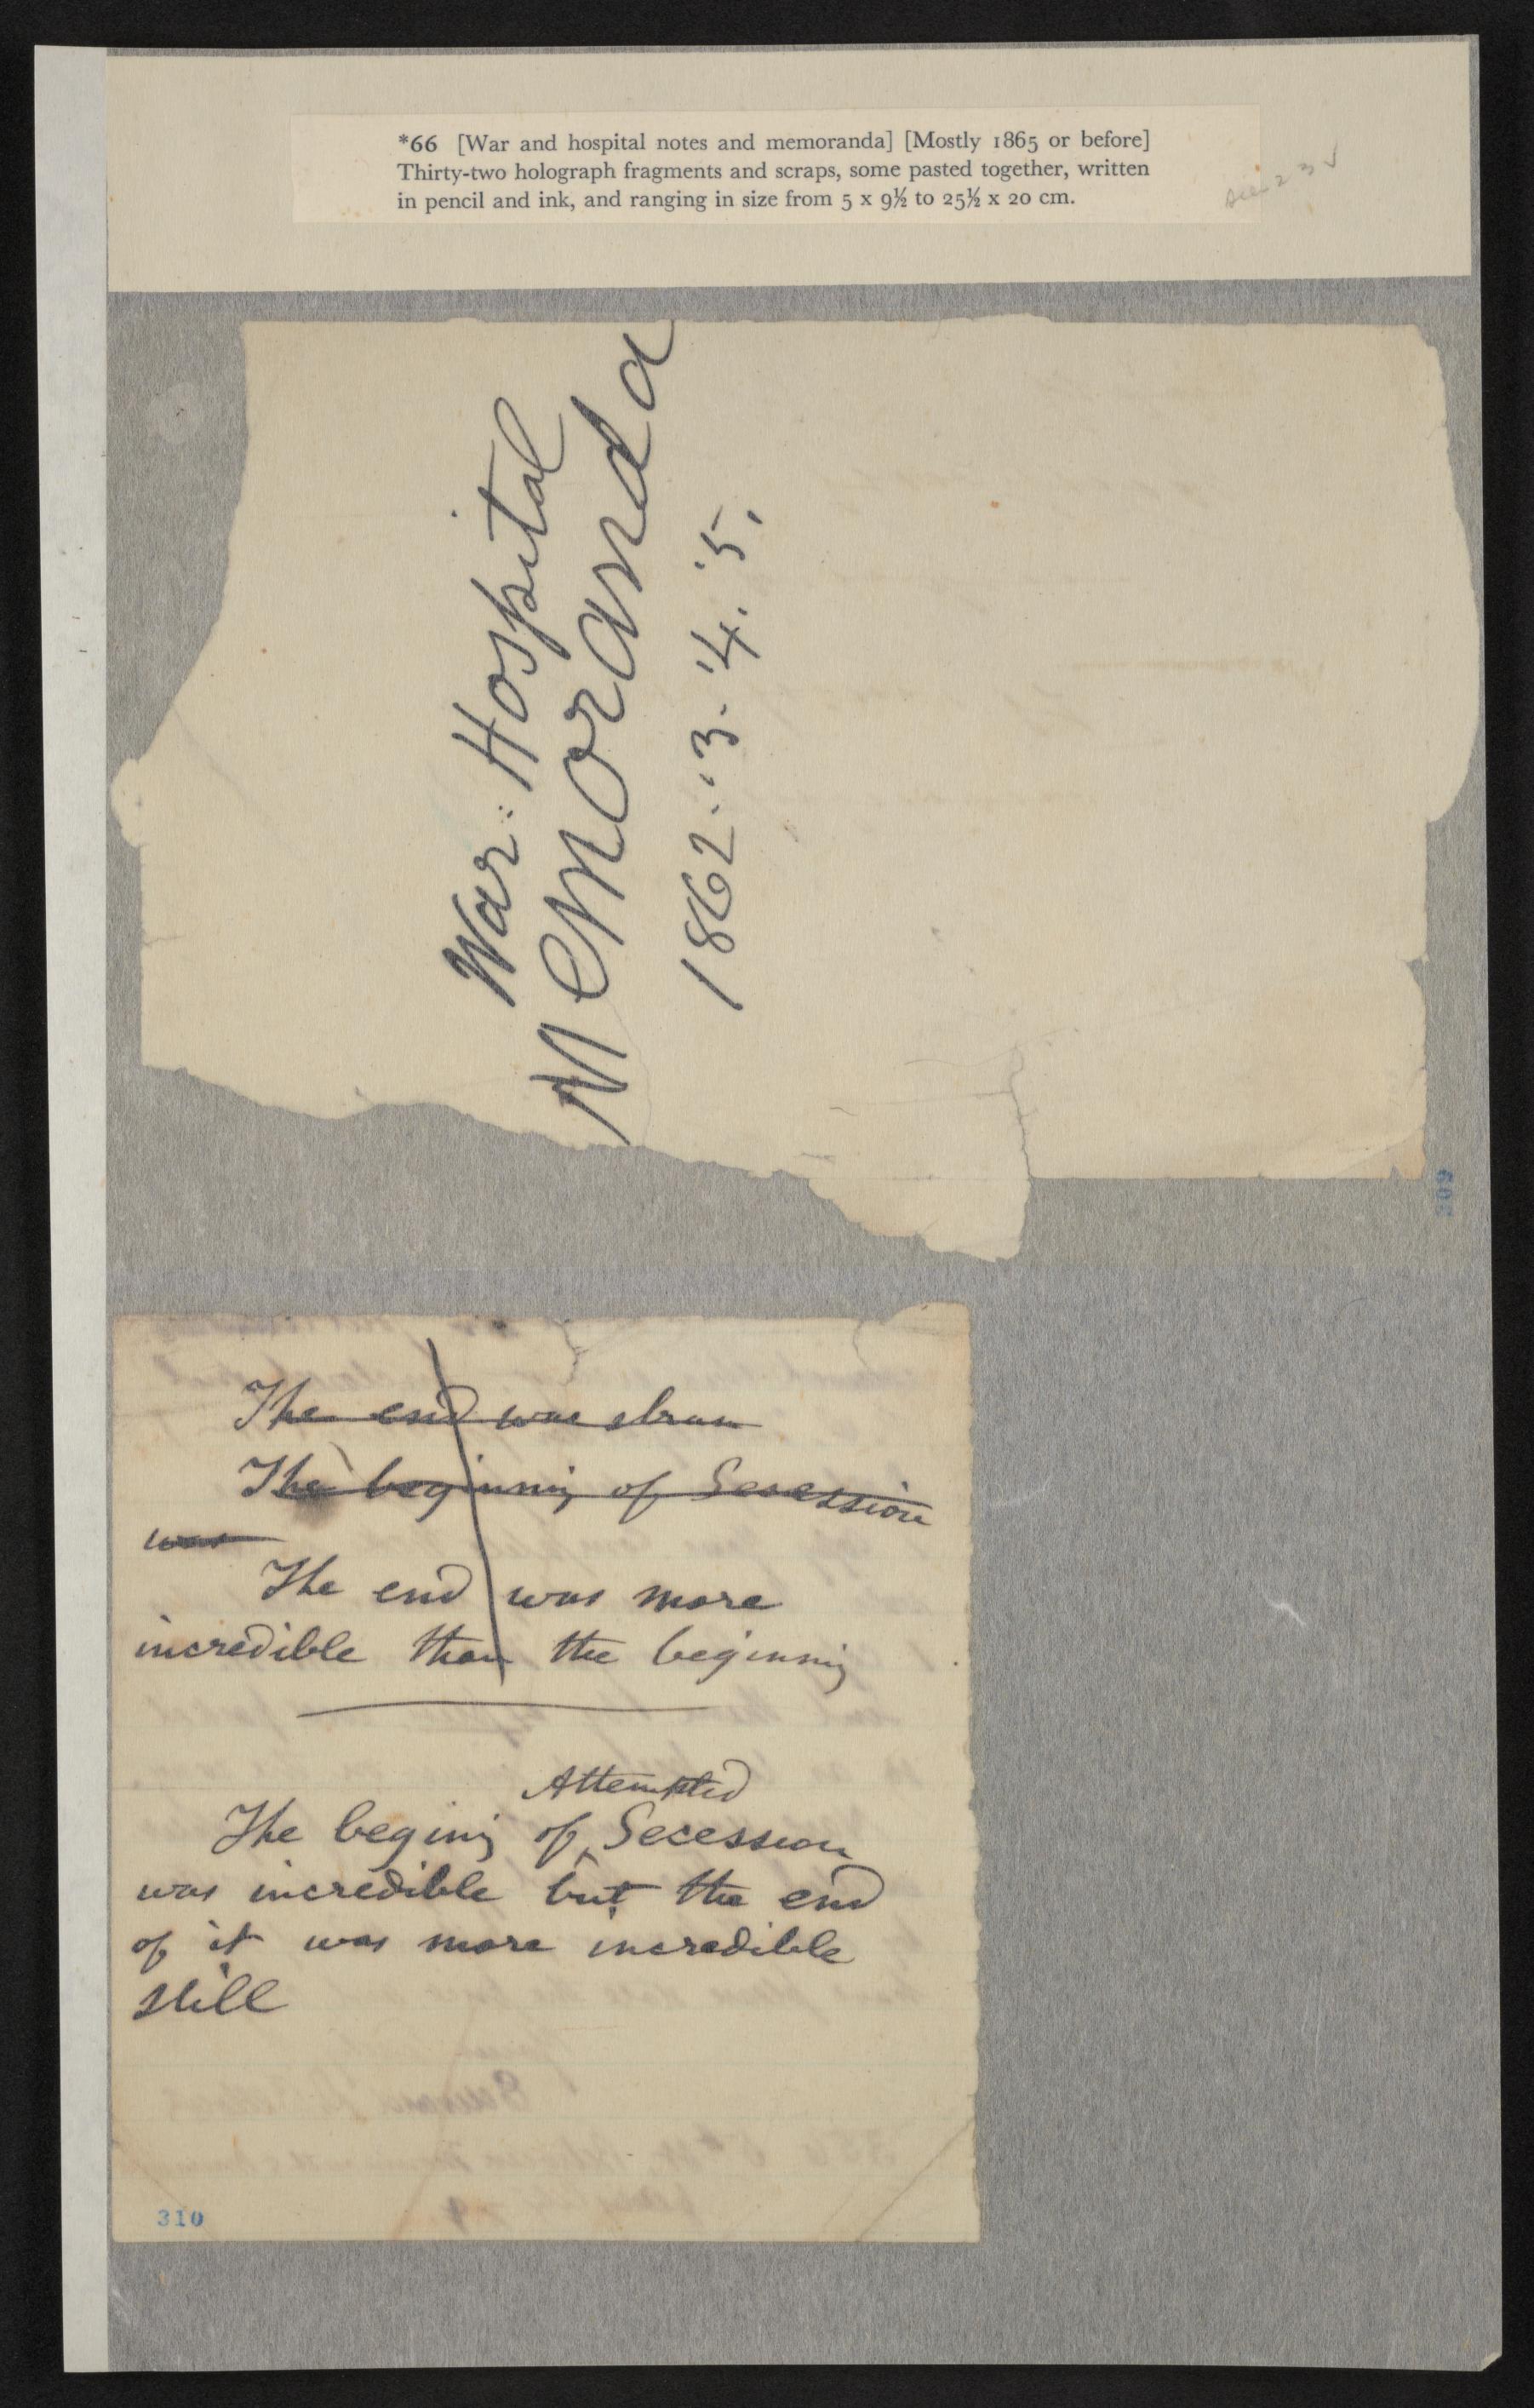 *66 [War and hospital notes and memoranda] [Mostly 1865 or before]
Thirty-two holograph fragments and scraps, some pasted together, written
in pencil and ink, and ranging in size from 5 x 9½ to 25½ x 20 cm.
War: Hospital
Memoranda
1862.. '3. '4. '5.
309
The end was
The beginning of Secession
was
The end was more
incredible than the beginning
Attempted
The begining of ‸ Secession
was incredible but the end
of it was more incredible
still
310